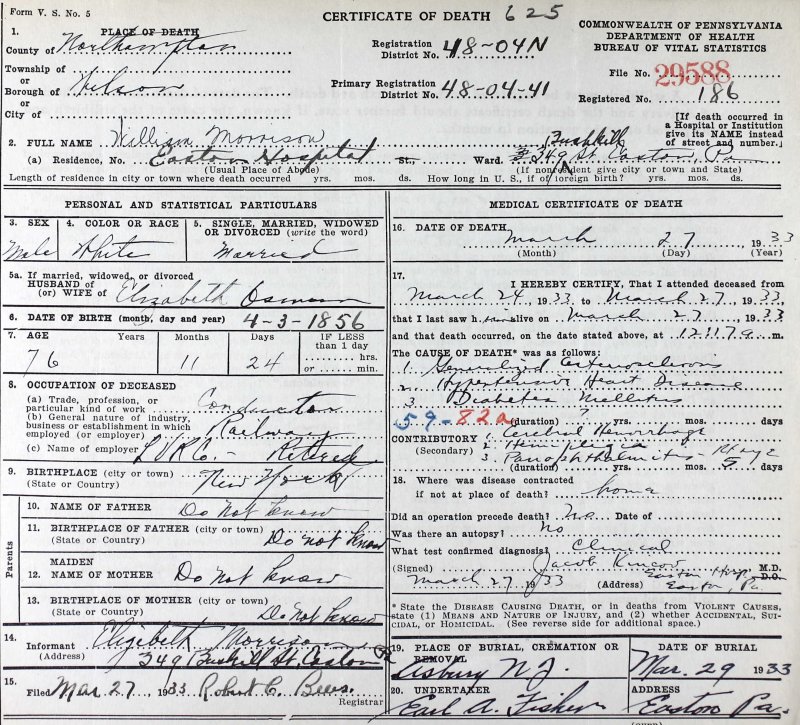 Form V. S. No. 5
CERTIFICATE OF DEATH 625
COMMONWEALTH OF PENNSYLVANIA
DEPARTMENT OF HEALTH
BUREAU OF VITAL STATISTICS
1. PLACE OF DEATH
County of Northampton
Township of
or
Borough of Wilson
or
City of
Registration District No. 48-04N
Primary Registration District No. 48-04-41
File No. 29588
Registered No. 186
[If death occurred in a Hospital or Institution give its NAME instead of street and number.]
2. FULL NAME William Morrison
(a) Residence, No. Easton Hospital St. Ward. 349 Bushkill St. Easton, Pa
(Usual Place of Abode) (If nonresident give city or town and State)
Length of residence in city or town where death occurred yrs. mos. ds. How long in U. S., if of foreign birth? yrs. mos. ds.
PERSONAL AND STATISTICAL PARTICULARS
3. SEX Male
4. COLOR OR RACE White
5. SINGLE, MARRIED, WIDOWED OR DIVORCED (write the word) Married
5a. If married, widowed, or divorced
HUSBAND of
(or) WIFE of Elizabeth Osmun
6. DATE OF BIRTH (month, day and year) 4-3-1856
7. AGE Years Months Days IF LESS than 1 day
76 11 24 hrs. or min.
8. OCCUPATION OF DECEASED
(a) Trade, profession, or particular kind of work Conductor
(b) General nature of industry, business or establishment in which employed (or employer) Railway
(c) Name of employer L.V.R.Co. - Retired
9. BIRTHPLACE (city or town)
(State or Country) New York
Parents
10. NAME OF FATHER Do not know
11. BIRTHPLACE OF FATHER (city or town)
(State or Country) Do not know
12. MAIDEN NAME OF MOTHER Do not know
13. BIRTHPLACE OF MOTHER (city or town)
(State or Country) Do not know
14. Informant Elizibeth Morrison
(Address) 349 Bushkill St Easton Pa
15. Filed Mar 27, 1933 Robert C. Bees. Registrar
MEDICAL CERTIFICATE OF DEATH
16. DATE OF DEATH
March 27 1933
(Month) (Day) (Year)
17. I HEREBY CERTIFY, That I attended deceased from
March 24, 1933, to March 27, 1933,
that I last saw him alive on March 27, 1933
and that death occurred, on the date stated above, at 12:17a m.
The CAUSE OF DEATH* was as follows:
1. Generalized Arteriosclerosis
2. Hypertensive Heart Disease
3. Diabetes Mellitus
59-82a (duration) ? yrs. mos. days
CONTRIBUTORY 1. Cerebral Hemorrhage
(Secondary) 2. Hemiplegia
3. Panophthalmitis - Rt eye
(duration) yrs. mos. 5 days
18. Where was disease contracted
if not at place of death? home
Did an operation precede death? No Date of
Was there an autopsy? No
What test confirmed diagnosis? Clinical
(Signed) Jacob M.D.
March 27 1933 (Address) Easton Hosp. D.O.
Easton, Pa.
* State the DISEASE CAUSING DEATH, or in deaths from VIOLENT CAUSES,
state (1) MEANS AND NATURE OF INJURY, and (2) whether ACCIDENTAL, SUI-
CIDAL, or HOMICIDAL. (See reverse side for additional space.)
19. PLACE OF BURIAL, CREMATION OR REMOVAL
Asbury N.J.
DATE OF BURIAL
Mar. 29 1933
20. UNDERTAKER
Earl A. Fisher
ADDRESS
Easton Pa.